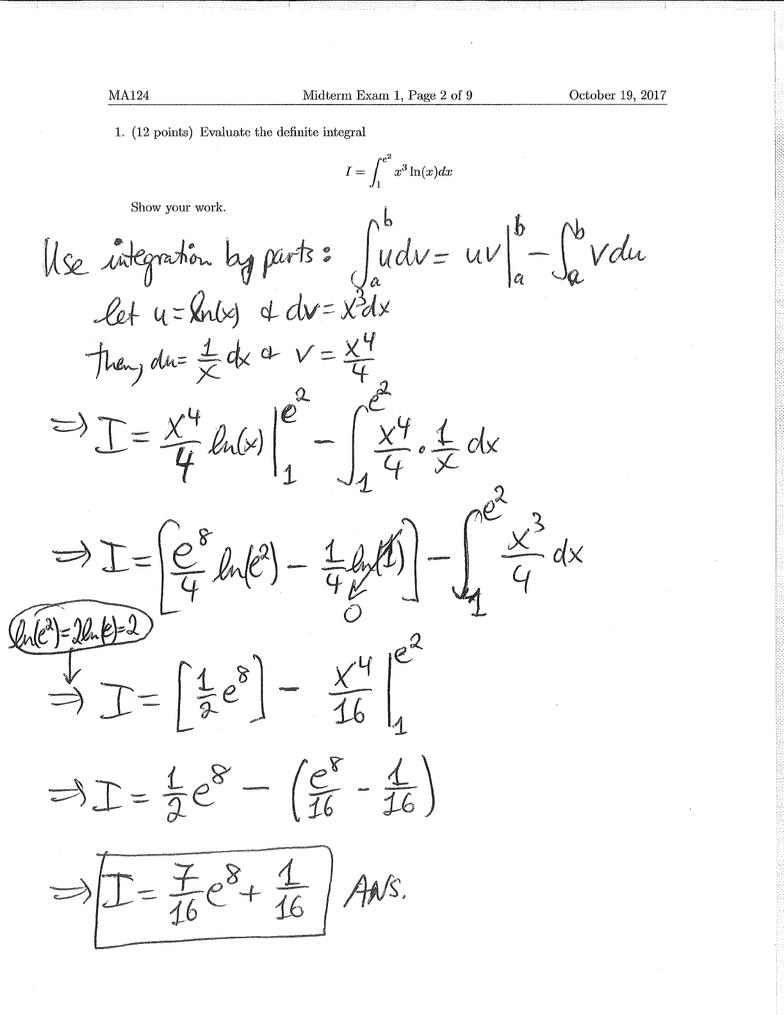 MA124 Midterm Exam 1, Page 2 of 9 October 19, 2017
1. (12 points) Evaluate the definite integral
I = ∫₁^{e²} x³ ln(x)dx
Show your work.
Use integration by parts: ∫ₐᵇ udv = uv|ₐᵇ − ∫ₐᵇ vdu
let u = ln(x) & dv = x³dx
then, du = 1/x dx & v = x⁴/4
⇒ I = x⁴/4 ln(x)|₁^{e²} − ∫₁^{e²} x⁴/4 · 1/x dx
⇒ I = [e⁸/4 ln(e²) − 1/4 ln(1)] − ∫₁^{e²} x³/4 dx
0
ln(e²) = 2ln(e) = 2
⇒ I = [1/2 e⁸] − x⁴/16|₁^{e²}
⇒ I = 1/2 e⁸ − (e⁸/16 − 1/16)
⇒ I = 7/16 e⁸ + 1/16 ANS.